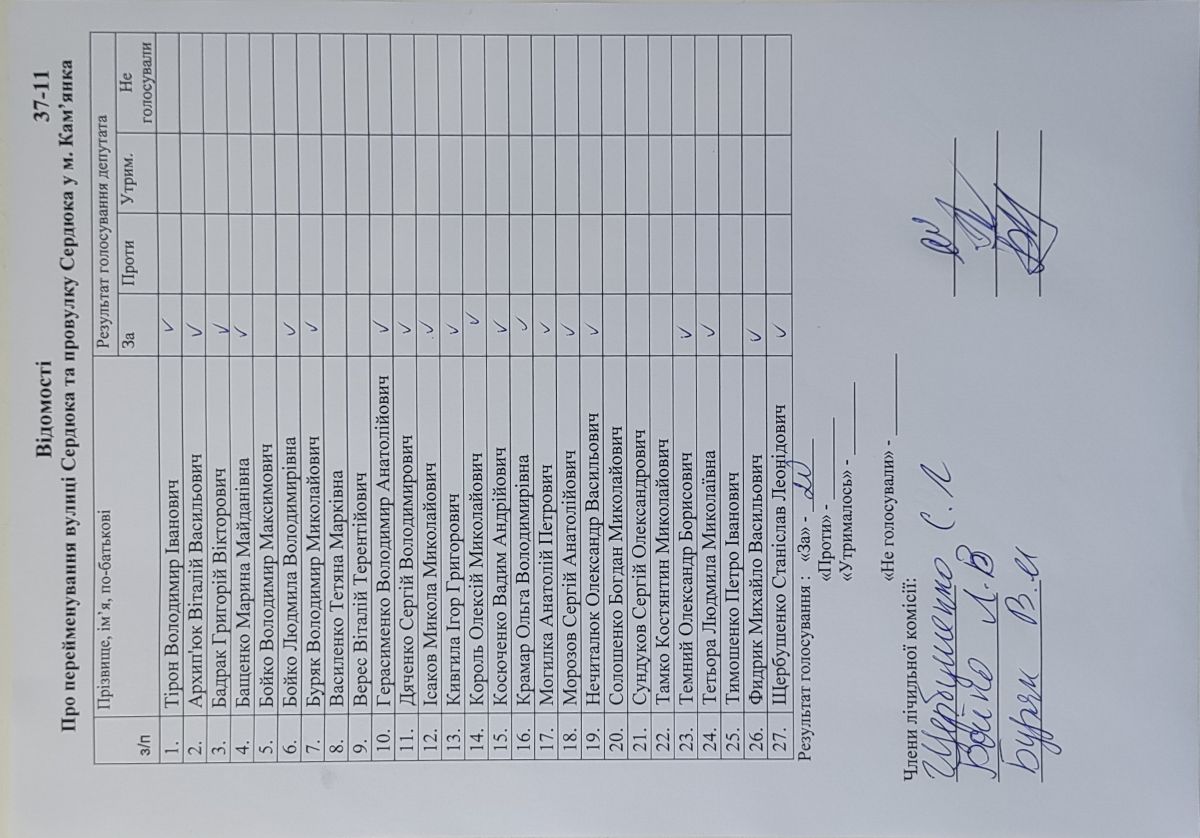 Відомості 37-11
Про перейменування вулиці Сердюка та провулку Сердюка у м. Кам’янка
з/п Прізвище, ім’я, по-батькові Результат голосування депутата
За Проти Утрим. Не голосували
1. Тірон Володимир Іванович ✓
2. Архип'юк Віталій Васильович ✓
3. Бадрак Григорій Вікторович ✓
4. Бащенко Марина Майданівна ✓
5. Бойко Володимир Максимович
6. Бойко Людмила Володимирівна ✓
7. Буряк Володимир Миколайович ✓
8. Василенко Тетяна Марківна
9. Верес Віталій Терентійович
10. Герасименко Володимир Анатолійович ✓
11. Дяченко Сергій Володимирович ✓
12. Ісаков Микола Миколайович ✓
13. Кивгила Ігор Григорович ✓
14. Король Олексій Миколайович ✓
15. Косюченко Вадим Андрійович ✓
16. Крамар Ольга Володимирівна ✓
17. Могилка Анатолій Петрович ✓
18. Морозов Сергій Анатолійович ✓
19. Нечиталюк Олександр Васильович ✓
20. Солошенко Богдан Миколайович
21. Сундуков Сергій Олександрович
22. Тамко Костянтин Миколайович
23. Темний Олександр Борисович ✓
24. Тетьора Людмила Миколаївна ✓
25. Тимошенко Петро Іванович
26. Фидрик Михайло Васильович ✓
27. Щербушенко Станіслав Леонідович ✓
Результат голосування : «За» - 20
«Проти» -
«Утрималось» -
«Не голосували» -
Члени лічильної комісії:
Щербушенко С. Л
Бойко Л. В
Буряк В. М